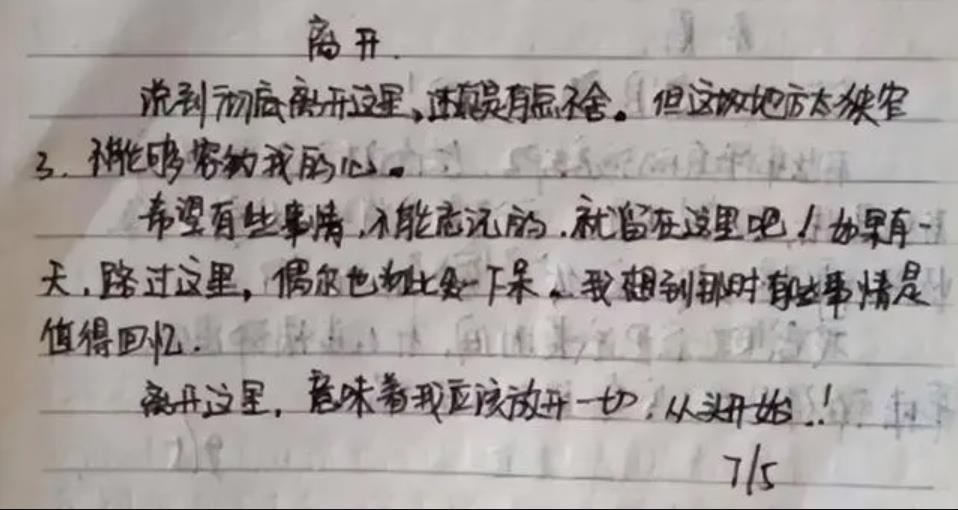 离开.
说到彻底离开这里,还真是有点不舍。但这块地方太狭窄
了.不能够容纳我的心。
希望有些事情,不能忘记的,就留在这里吧!如果有一
天,路过这里,偶尔也拾一下来。我想到那时有些事情是
值得回忆.
离开这里,意味着我应该放开一切,从头开始.!
7/5